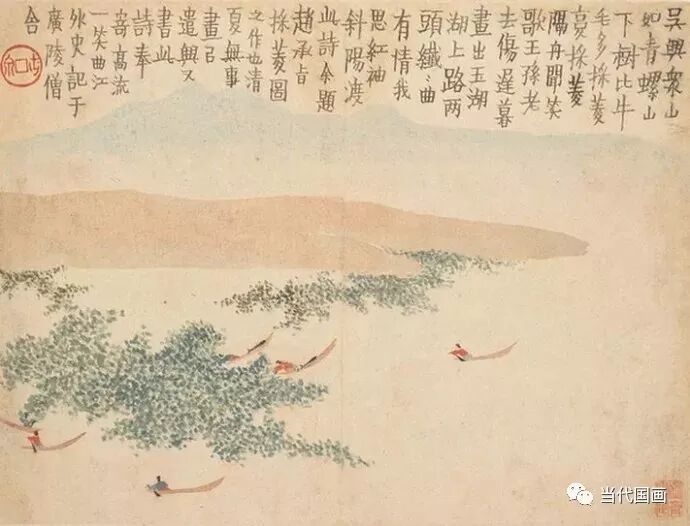 吳興衆山
如青螺山
下樹比牛
毛多採菱
復採菱
隔舟聞笑
歌王孫老
去傷遲暮
畫出玉湖
湖上路兩
頭纖〻曲
有情我
思紅袖
斜陽渡
此詩余題
趙承旨
採菱圖
之作也清
夏無事
畫㠯
遣興又
書此
詩奉
寄高流
一笑曲江
外史記于
廣陵僧
舍
当代国画